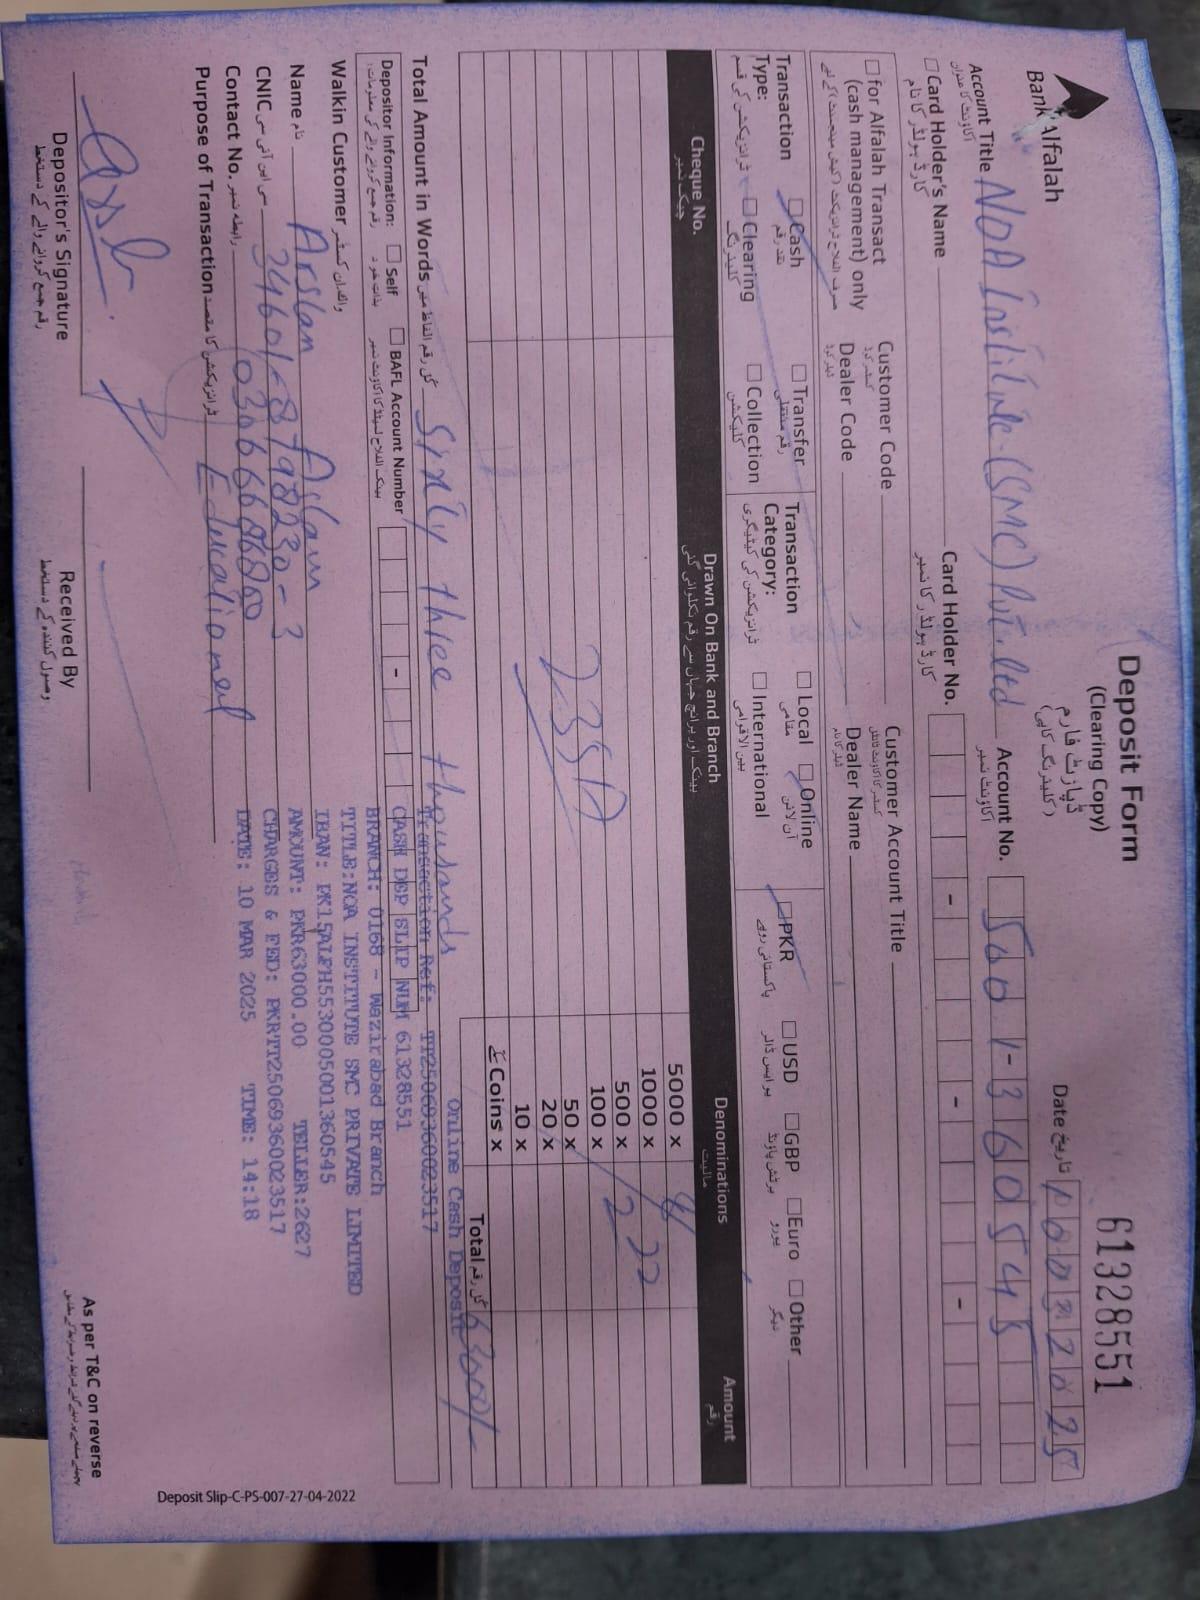 Bank Alfalah
Deposit Form
(Clearing Copy)
ڈپازٹ فارم
(کلیئرنگ کاپی)
61328551
Date تاریخ 10032025
Account Title NOA Institute (SMC) Pvt. Ltd
اکاؤنٹ کا عنوان
Account No. 5001-360545
اکاؤنٹ نمبر
Card Holder's Name
کارڈ ہولڈر کا نام
Card Holder No.
کارڈ ہولڈر کا نمبر
for Alfalah Transact
(cash management) only
Customer Code
Customer Account Title
Dealer Code
Dealer Name
Transaction
Type:
Cash
نقد رقم
Transfer
رقم منتقلی
Clearing
کلیئرنگ
Collection
کلیکشن
Transaction
Category:
ٹرانزیکشن کی کیٹیگری
Local
مقامی
Online
آن لائن
International
بین الاقوامی
PKR
پاکستانی روپے
USD
یو ایس ڈالر
GBP
برٹش پاؤنڈ
Euro
یورو
Other
دیگر
Cheque No.
چیک نمبر
Drawn On Bank and Branch
Denominations
مالیت
Amount
رقم
5000 x
1000 x 22
500 x 2
100 x
50 x
20 x
10 x
Coins x سکے
Total کل رقم 63000/-
Total Amount in Words کل رقم الفاظ میں Sixty three thousands
Online Cash Deposit
Transaction Ref: TT25069360023517
CASH DEP SLIP NUM 61328551
BRANCH: 0168 - Wazirabad Branch
TITLE:NOA INSTITUTE SMC PRIVATE LIMITED
IBAN: PK15ALFH5530005001360545
AMOUNT: PKR63000.00 TELLER:2627
CHARGES & FED: PKRTT25069360023517
DATE: 10 MAR 2025 TIME: 14:18
Depositor Information:
Self
بذات خود
BAFL Account Number
Walkin Customer
Name نام Arslan Aslam
CNIC سی این آئی سی 34601-8798230-3
Contact No. رابطہ نمبر
Purpose of Transaction ٹرانزیکشن کا مقصد Educational
Depositor's Signature
رقم جمع کروانے والے کے دستخط
Received By
وصول کنندہ کے دستخط
As per T&C on reverse
Deposit Slip-C-PS-007-27-04-2022